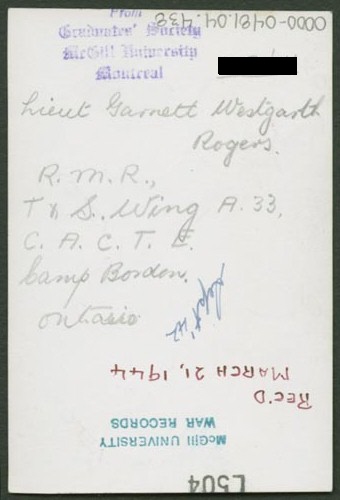 0000-0481.04.438
From
Graduates' Society
McGill University
Montreal
Lieut Garnett Westgarth
Rogers.
R.M.R.,
T & S. Wing A.33,
C. A. C. T. E.
Camp Borden.
Ontario
Sept '42
REC'D
MARCH 21, 1944
McGILL UNIVERSITY
WAR RECORDS
L504